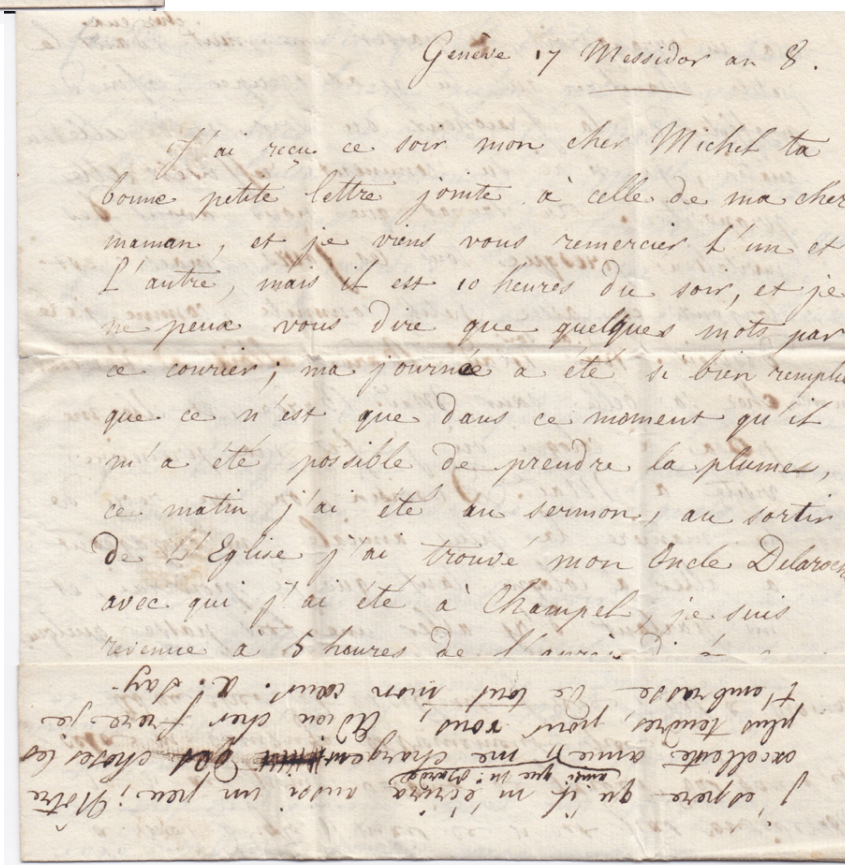 Genève 17 Messidor an 8.
J'ai reçu ce soir mon cher Michel ta
bonne petite lettre jointe à celle de ma cher
maman, et je viens vous remercier l'un et
l'autre, mais il est 10 heures du soir, et je
ne peux vous dire que quelques mots par
ce courier; ma journée a été si bien remplie
que ce n'est que dans ce moment qu'il
m'a été possible de prendre la plume,
ce matin j'ai été au sermon, au sortir
de l'Eglise j'ai trouvé mon Oncle Delaroche
avec qui j'ai été à Champel, je suis
revenue à 5 heures de
J'espere qu'il m'écrira aussi un peu; Nôtre
excellente amie me chargent des choses les
plus tendres, pour vous, Adieu cher frere je
t'embrasse de tout mon cœur. A. Say.